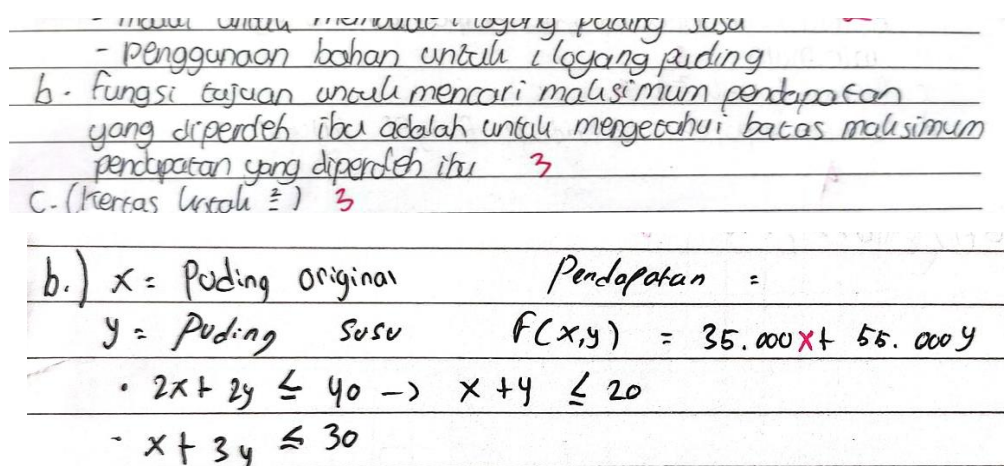 - modal untuk membuat 1 loyang puding susu
- penggunaan bahan untuk 1 loyang puding
b. fungsi tujuan untuk mencari maksimum pendapatan
yang diperoleh ibu adalah untuk mengetahui batas maksimum
pendapatan yang diperoleh ibu 3
C. (kertas ) 3
b.) x = Puding original Pendapatan =
y = Puding susu F(x,y) = 35.000x + 55.000y
• 2x + 2y ≤ 40 -> x + y ≤ 20
- x + 3y ≤ 30